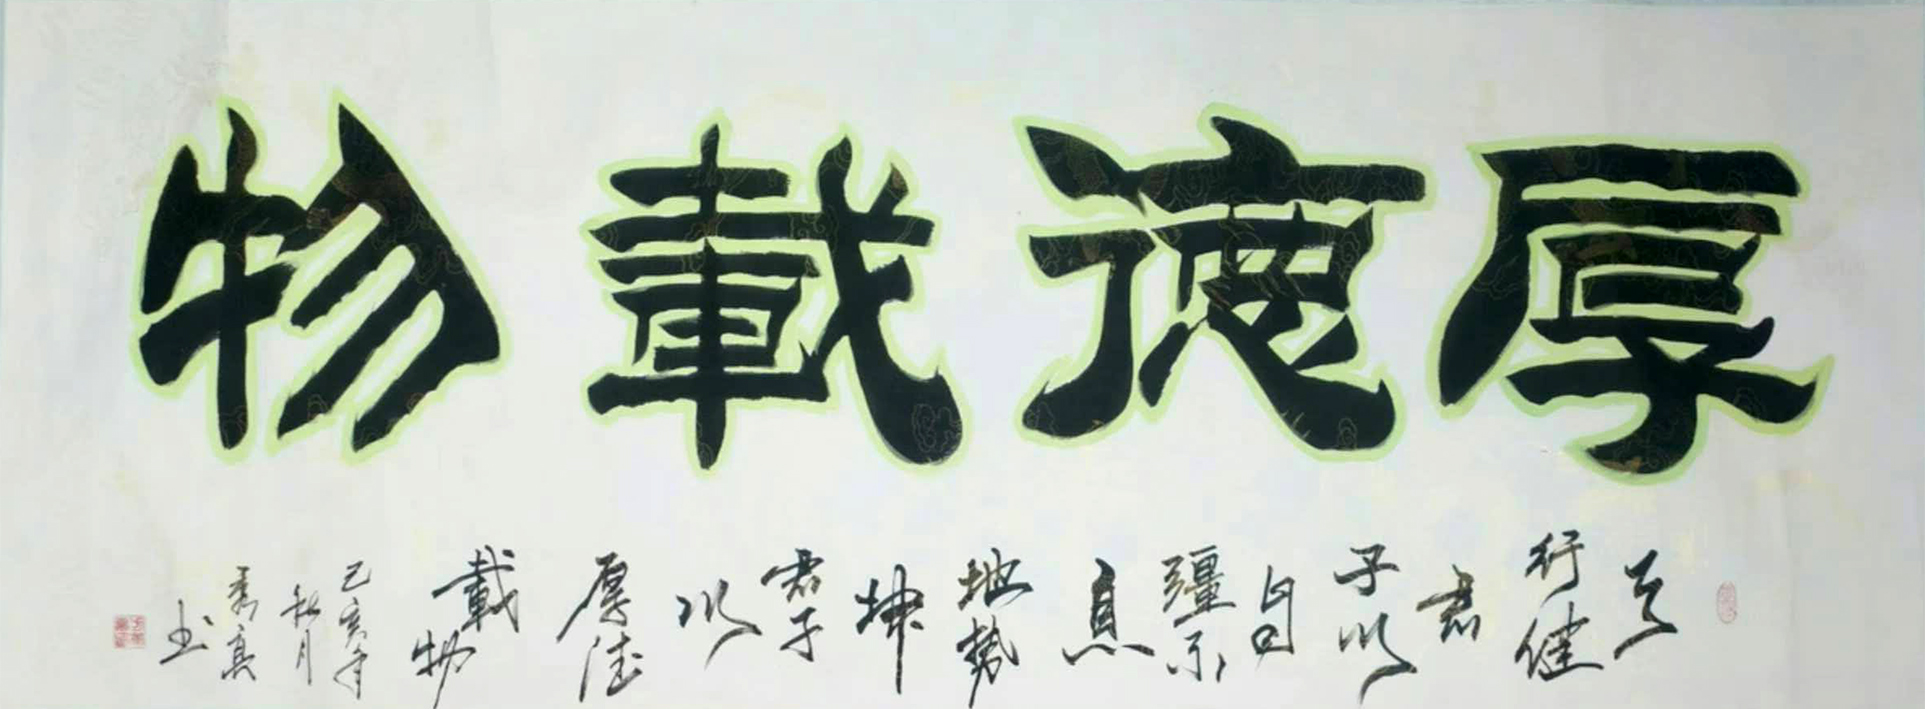 厚德載物
天
行健
君
子以
自
疆不
息
地勢
坤
君子
以
厚德
載物
己亥年
秋月
秀
书